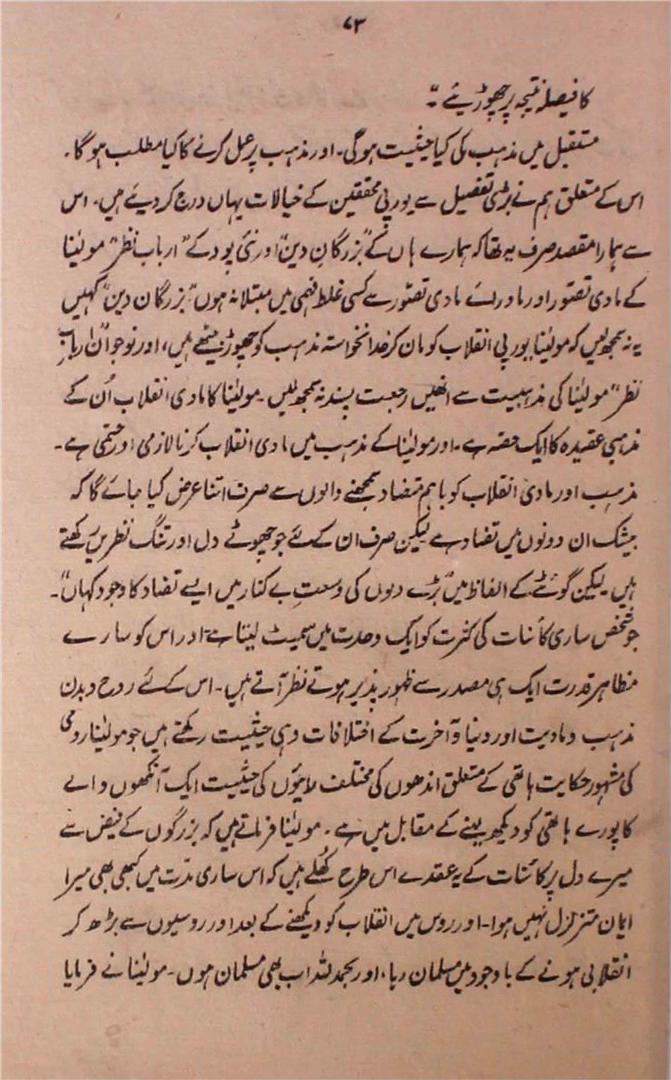 ۷۳
کا فیصلہ نتیجہ پر چھوڑیئے۔"
مستقبل میں مذہب کی کیا حیثیت ہوگی۔ اور مذہب پر عمل کرنے کا کیا مطلب ہو گا۔
اس کے متعلق ہم نے بڑی تفصیل سے یورپی محققین کے خیالات یہاں درج کر دیئے ہیں۔ اس
سے ہمارا مقصد صرف یہ تھا کہ ہمارے ہاں کے "بزرگان دین" اور نئی پود کے "ارباب نظر" مولینا
کے مادی تصور اور ماورائے مادی تصور سے کسی غلط فہمی میں مبتلا نہ ہوں "بزرگان دین" کہیں
یہ نہ سمجھ لیں کہ مولینا یورپی انقلاب کو مان کر خدانخواستہ مذہب کو چھوڑ بیٹھے ہیں، اور نوجوان "ارباب
نظر" مولینا کی مذہبیت سے انھیں رجعت پسند نہ سمجھ لیں۔ مولینا کا مادی انقلاب اُن کے
مذہبی عقیدہ کا ایک حصہ ہے۔ اور مولینا کے مذہب میں مادی انقلاب کرنا لازمی اور حتمی ہے۔
مذہب اور مادی انقلاب کو باہم متضاد سمجھنے والوں سے صرف اتنا عرض کیا جائے گا کہ
بیشک ان دونوں میں تضاد ہے لیکن صرف ان کے لئے جو چھوٹے دل اور تنگ نظریں رکھتے
ہیں۔ لیکن گوئٹے کے الفاظ میں "بڑے دلوں کی وسعتِ بے کنار میں ایسے تضاد کا وجود کہاں"۔
جو شخص ساری کائنات کی کثرت کو ایک وحدت میں سمیٹ لیتا ہے اور اس کو سارے
مظاہر قدرت ایک ہی مصدر سے ظہور پذیر ہوتے نظر آتے ہیں۔ اس کے لئے روح و بدن
مذہب و مادیت اور دنیا و آخرت کے اختلافات وہی حیثیت رکھتے ہیں جو مولینا رومی
کی مشہور حکایت ہاتھی کے متعلق اندھوں کی مختلف رایوں کی حیثیت ایک آنکھوں والے
کا پورے ہاتھی کو دیکھ لینے کے مقابل میں ہے۔ مولینا فرماتے ہیں کہ بزرگوں کے فیض سے
میرے دل پر کائنات کے یہ عقدے اس طرح کُھلے ہیں کہ اس ساری مدت میں کبھی بھی میرا
ایمان متزلزل نہیں ہوا۔ اور روس میں انقلاب کو دیکھنے کے بعد اور روسیوں سے بڑھ کر
انقلابی ہونے کے باوجود میں مسلمان رہا، اور بحمدللہ اب بھی مسلمان ہوں۔ مولینا نے فرمایا